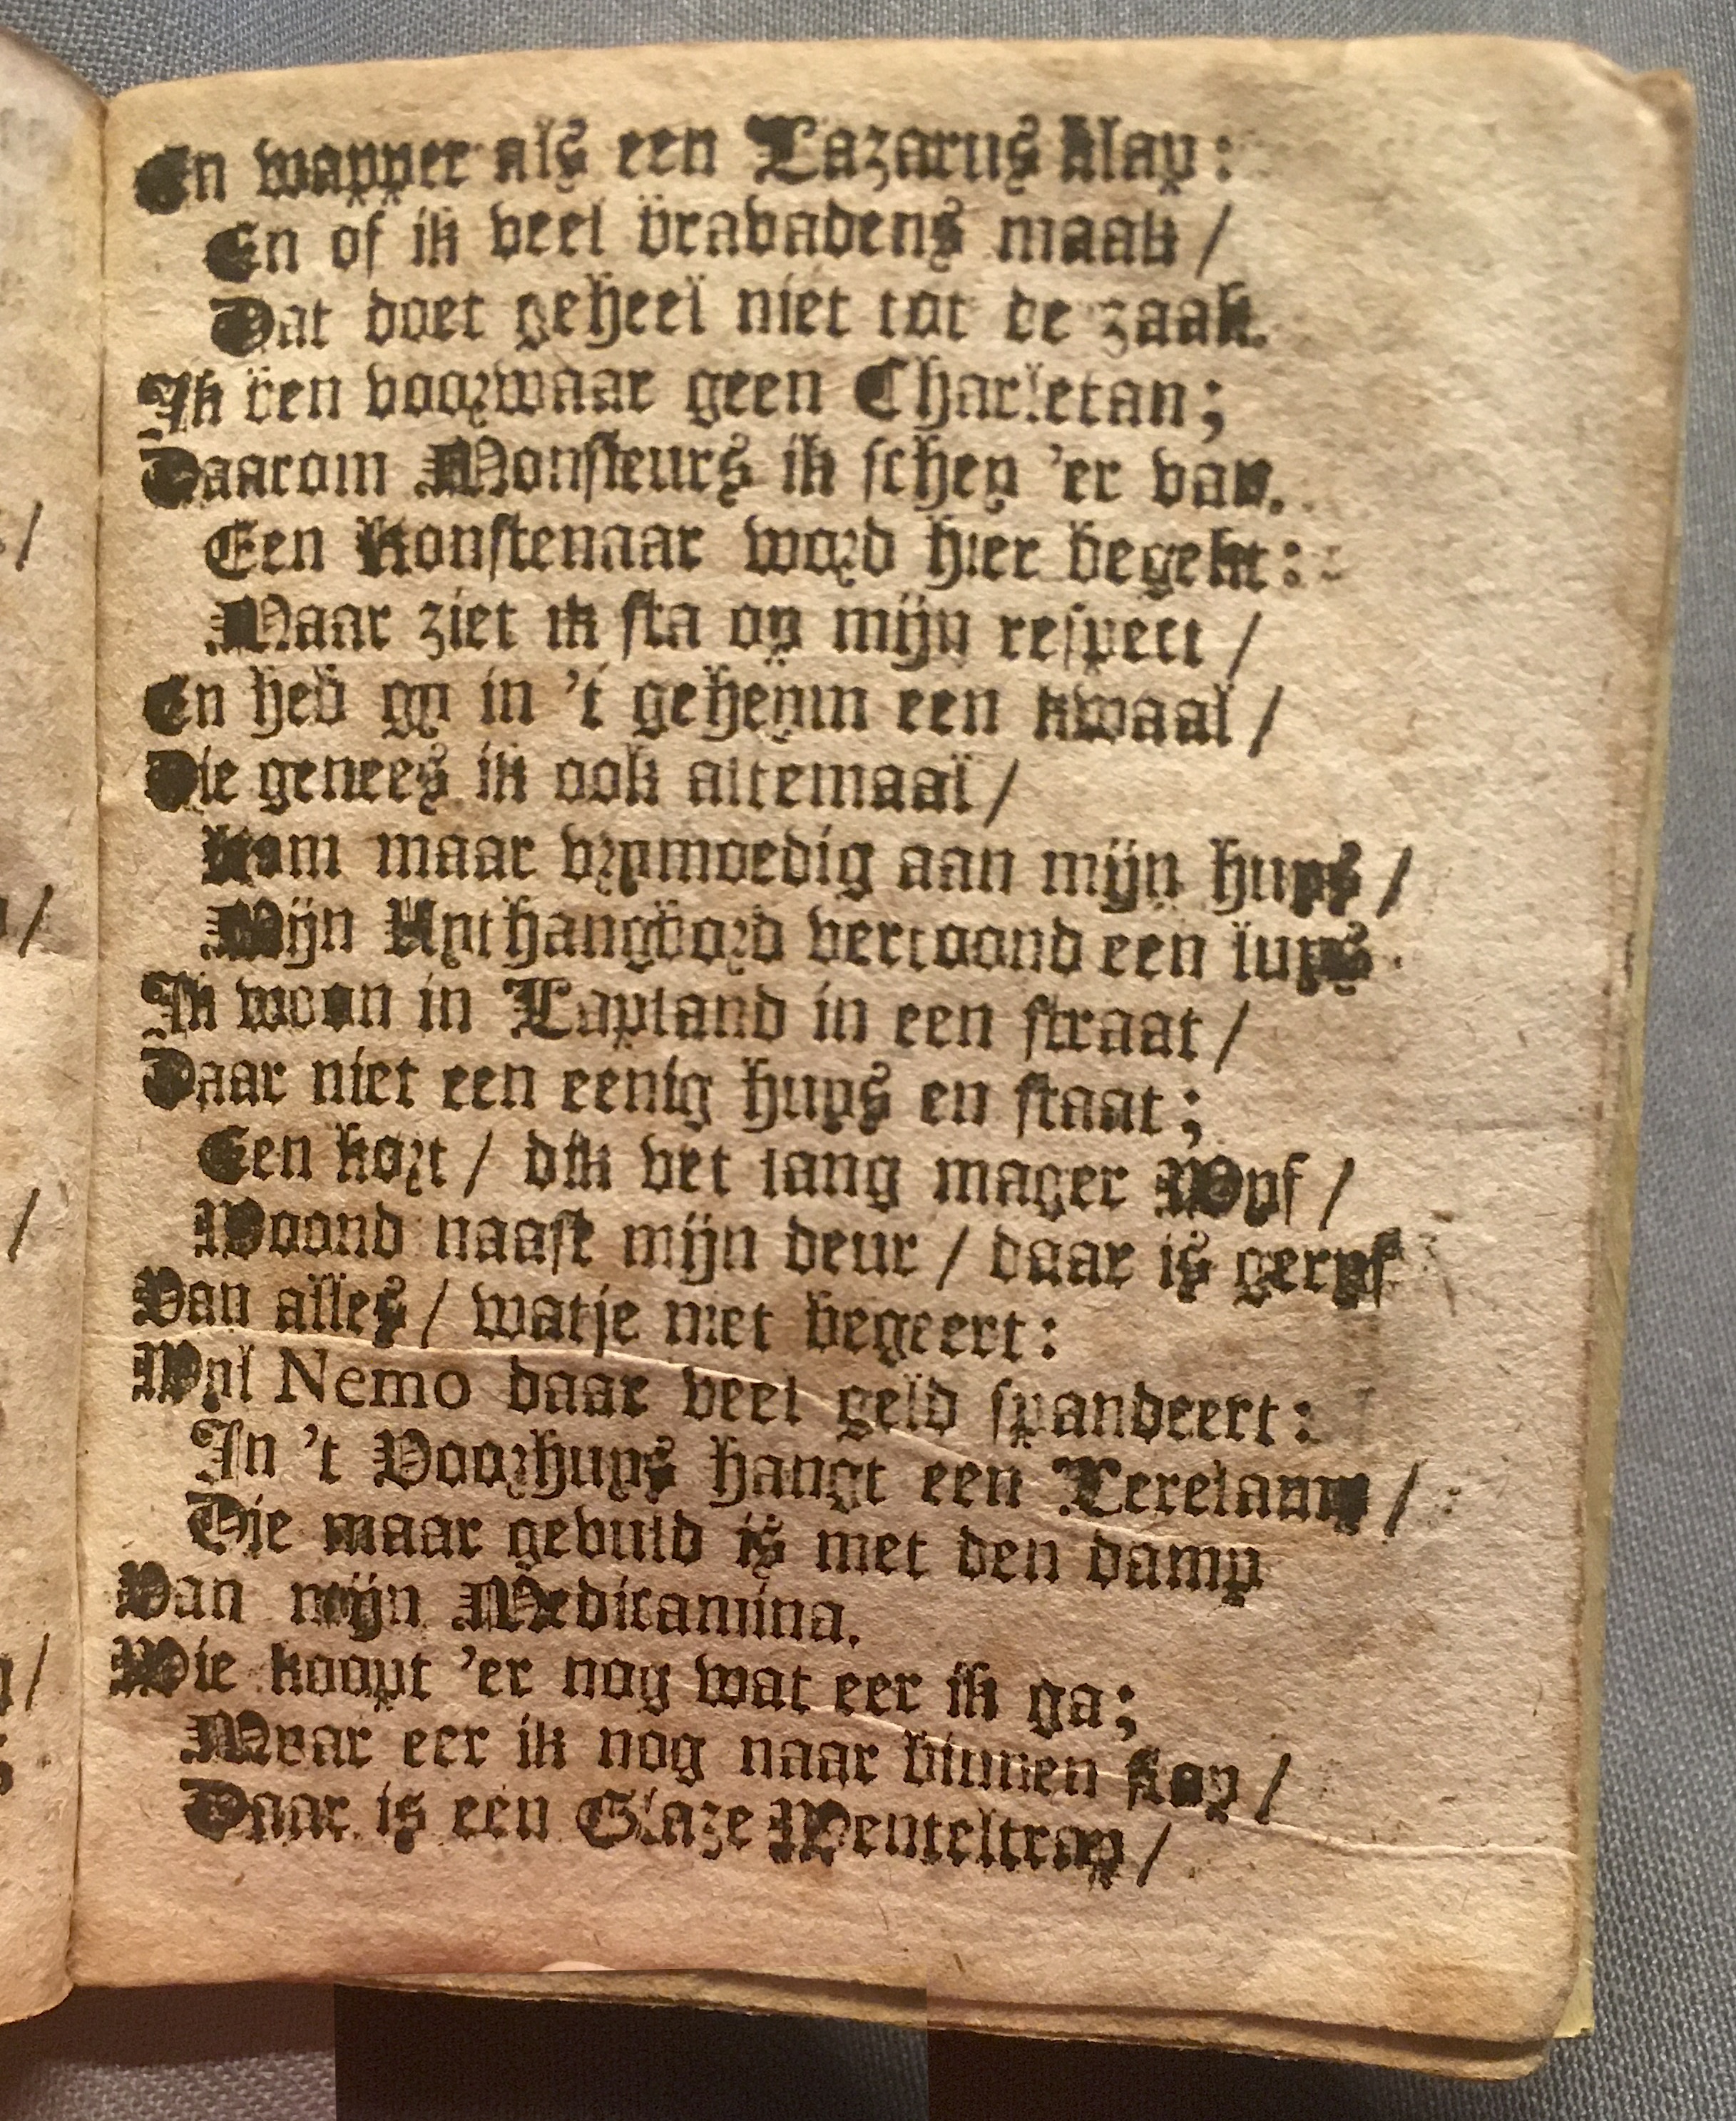 En wapper als een Lazarus klap:
En of ik veel bravadens maak /
Dat doet geheel niet tot de zaak.
Ik ben voorwaar geen Charletan;
Daarom Monsieurs ik schey 'er van.
Een Konstenaar word hier begekt:
Maar ziet ik sta op mijn respect /
En heb gy in 't geheym een kwaal /
Die genees ik ook altemaal /
Kom maar vrymoedig aan mijn huys /
Mijn Uythangbord vertoond een luys
Ik woon in Lapland in een straat /
Daar niet een eenig huys en staat;
Een kort / dik vet lang mager Wyf /
Woond naast mijn deur / daar is geryf
Van alles / watje niet begeert:
Wyl Nemo daar veel geld spandeert:
In 't Voorhuys hangt een Lerelamp /
Die maar gevuld is met den damp
Van mijn Medicamina.
Wie koopt 'er nog wat eer ik ga;
Maar eer ik nog naar binnen stap /
Daar is een Glaze Wenteltrap /